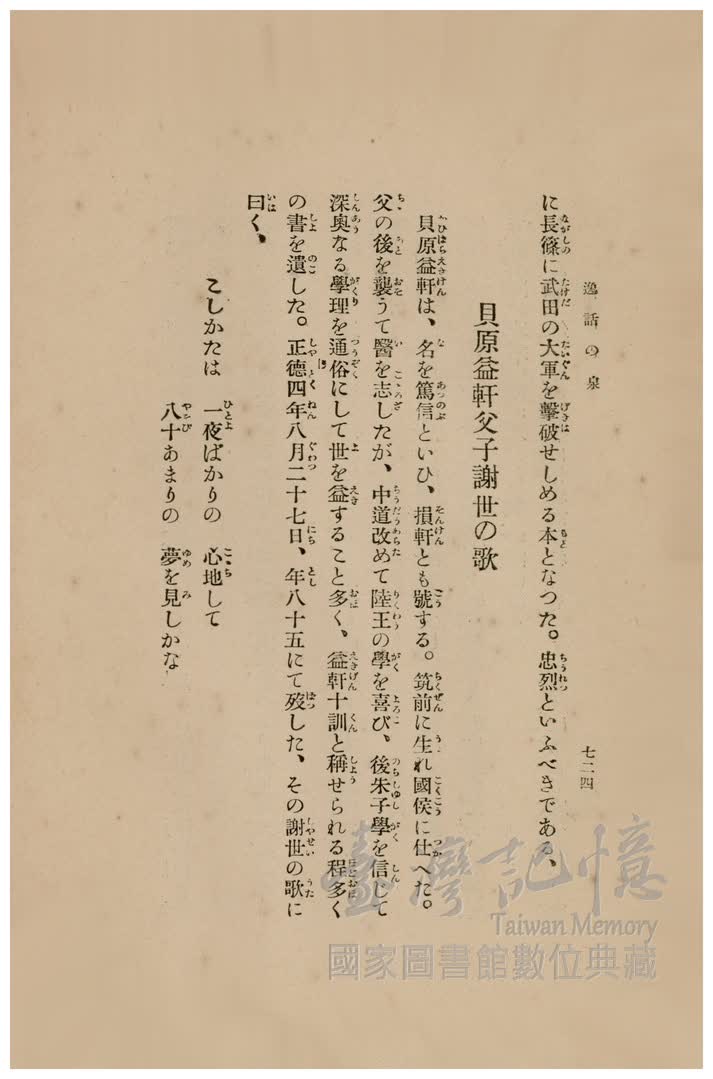 逸話の泉
七二四
に長篠に武田の大軍を擊破せしめる本となつた。忠烈といふべきである、
貝原益軒父子謝世の歌
貝原益軒は、名を篤信といひ、損軒とも號する。筑前に生れ國侯に仕へた。
父の後を襲うて醫を志したが、中道改めて陸王の學を喜び、後朱子學を信じて
深奧なる學理を通俗にして世を益すること多く、益軒十訓と稱せられる程多く
の書を遺した。正德四年八月二十七日、年八十五にて歿した、その謝世の歌に
曰く、
こしかたは 一夜ばかりの 心地して
八十あまりの 夢を見しかな
臺灣記憶
Taiwan Memory
國家圖書館數位典藏